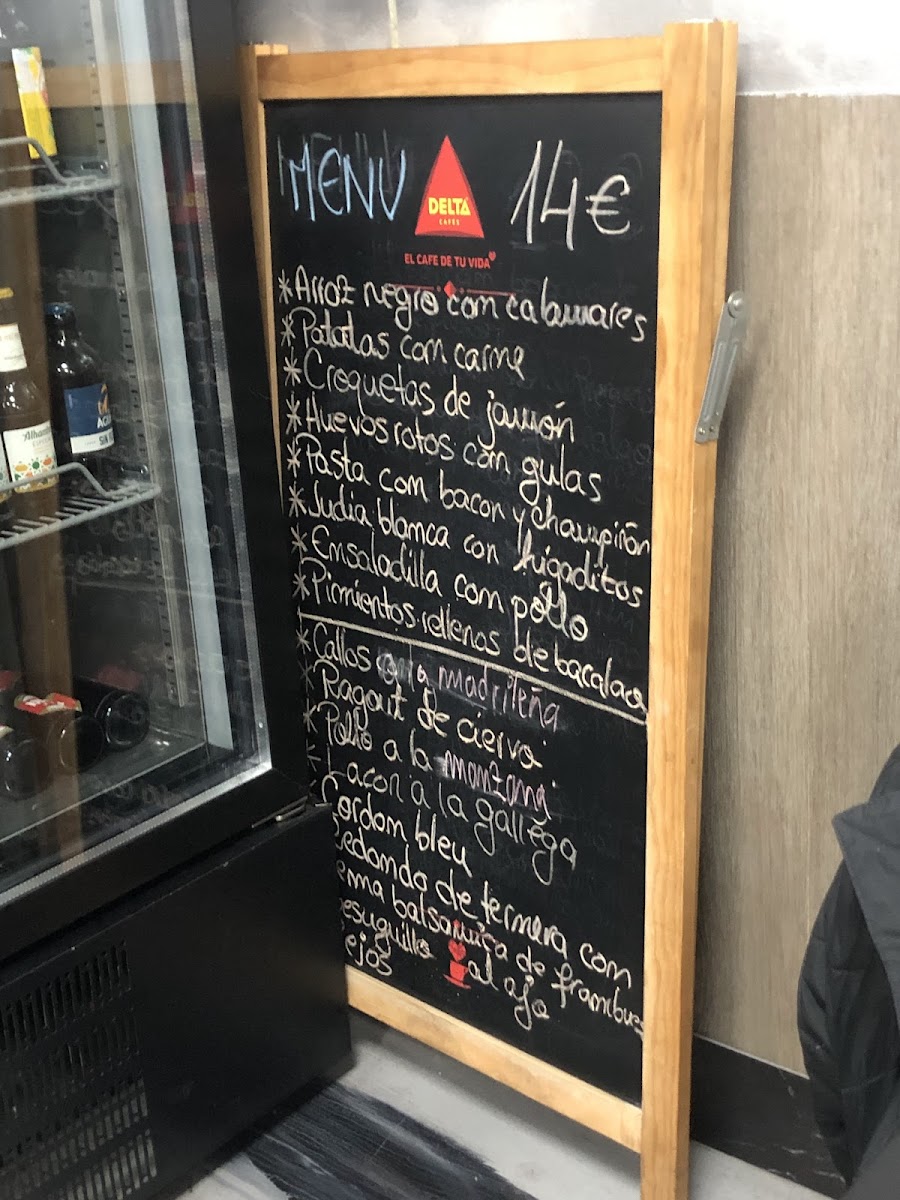 MENU
DELTA
CAFES
14€
EL CAFE DE TU VIDA
*Arroz negro com calamares
*Patatas com carme
*Croquetas de jamón
*Huevos rotos com gulas
*Pasta com bacon y champiñón
*Judia blamca con higaditos
*Emsaladilla com pollo
*Pimientos rellenos de bacalao
*Callos a la madrileña
*Ragout de ciervo
*Pollo a la manzana
Lacon a la gallega
Cordom bleu
Redomdo de termera com
balsamica de frambues
besuguillo al ajo
Alhambra
AGUI
SIN